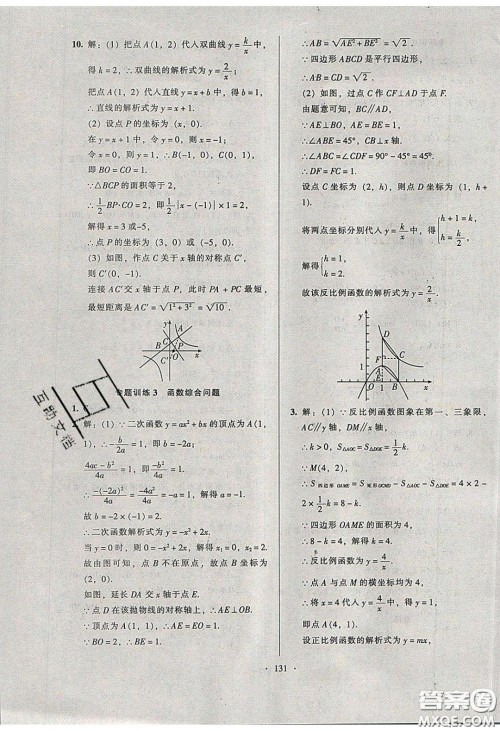 10. 解：(1) 把点 A(1，2) 代入双曲线 y=k/x 中，
得 k=2，∴双曲线的解析式为 y=2/x.
把点 A(1，2) 代入直线 y=x+b 中，得 b=1，
∴直线的解析式为 y=x+1.
(2) 设点 P 的坐标为 (x，0).
在 y=x+1 中，令 y=0，得 x=-1；
令 x=0，则 y=1，∴B(-1，0)，C(0，1)，
即 BO=CO=1.
∵△BCP 的面积等于 2，
∴1/2 BP·CO=2，即 1/2|x-(-1)|×1=2，
解得 x=3 或-5，
∴点 P 的坐标为 (3，0) 或 (-5，0).
(3) 如图，作点 C 关于 x 轴的对称点 C′，
连接 AC′交 x 轴于点 P，此时 PA+PC 最短，
最短距离是 AC′=√(1²+3²)=√10.
y
A
C
B
O
P
x
C′
专题训练 3 函数综合问题
1.
解：(1) ∵二次函数 y=ax²+bx 的顶点为 A(1，
1)，∴-b/2a=1，即 b=-2a，
(4ac-b²)/4a=-b²/4a=1，
∴-(-2a)²/4a=-4a²/4a=-a=1，∴a=-1.
故 b=2，
∴二次函数解析式为 y=-x²+2x.
当 y=0 时，则 0=-x²+2x，解得 x₁=0，x₂=2.
故由图可知，点 B 不在原点，故点 B 坐标为
(2，0).
如图，延长 DA 交 x 轴于点 E.
∵点 D 在该抛物线的对称轴上，∴AE⊥OB.
∵点 B 坐标为 (2，0)，∴BO=2.
∴BE=1，AE=1.
∴AB=√(AE²+BE²)=√2.
∵四边形 ABCD 是平行四边形，
∴CD=AB=√2.
(2) 如图，过点 C 作 CF⊥AD 于点 F.
由题意可知，BC∥AD，
∵AE⊥BO，∴AD⊥BO，∴BC⊥BO.
∵AE=BE=1，∴∠ABE=45°.
∴∠ABC=∠CDF=90°-45°=45°.
∴DF=FC=1.
设点 C 坐标为 (2，h)，则点 D 坐标为 (1，h+
1).
将两点坐标分别代入 y=k/x 中，得{h+1=k，h=k/2.
解得{h=1，k=2.
故该反比例函数的解析式为 y=2/x.
3. 解：(1) ∵反比例函数图象在第一、三象限，
AC∥y 轴，DM∥x 轴，
∴k>0，S△AOC=S△DOE=1/2k.
∵M(4，2)，
∴S四边形OAME=S四边形OCMD-S△AOC-S△DOE=4×2-
1/2k-1/2k=8-k.
∵四边形 OAME 的面积为 4，
∴8-k=4，解得 k=4.
∴反比例函数的解析式为 y=4/x.
∵点 A 与点 M 的横坐标均为 4，
∴将 x=4 代入 y=4/x，得 y=1，
即点 A(4，1).
设正比例函数的解析式为 y=mx，
· 131 ·
互动文档
答案圈
MXQE.COM